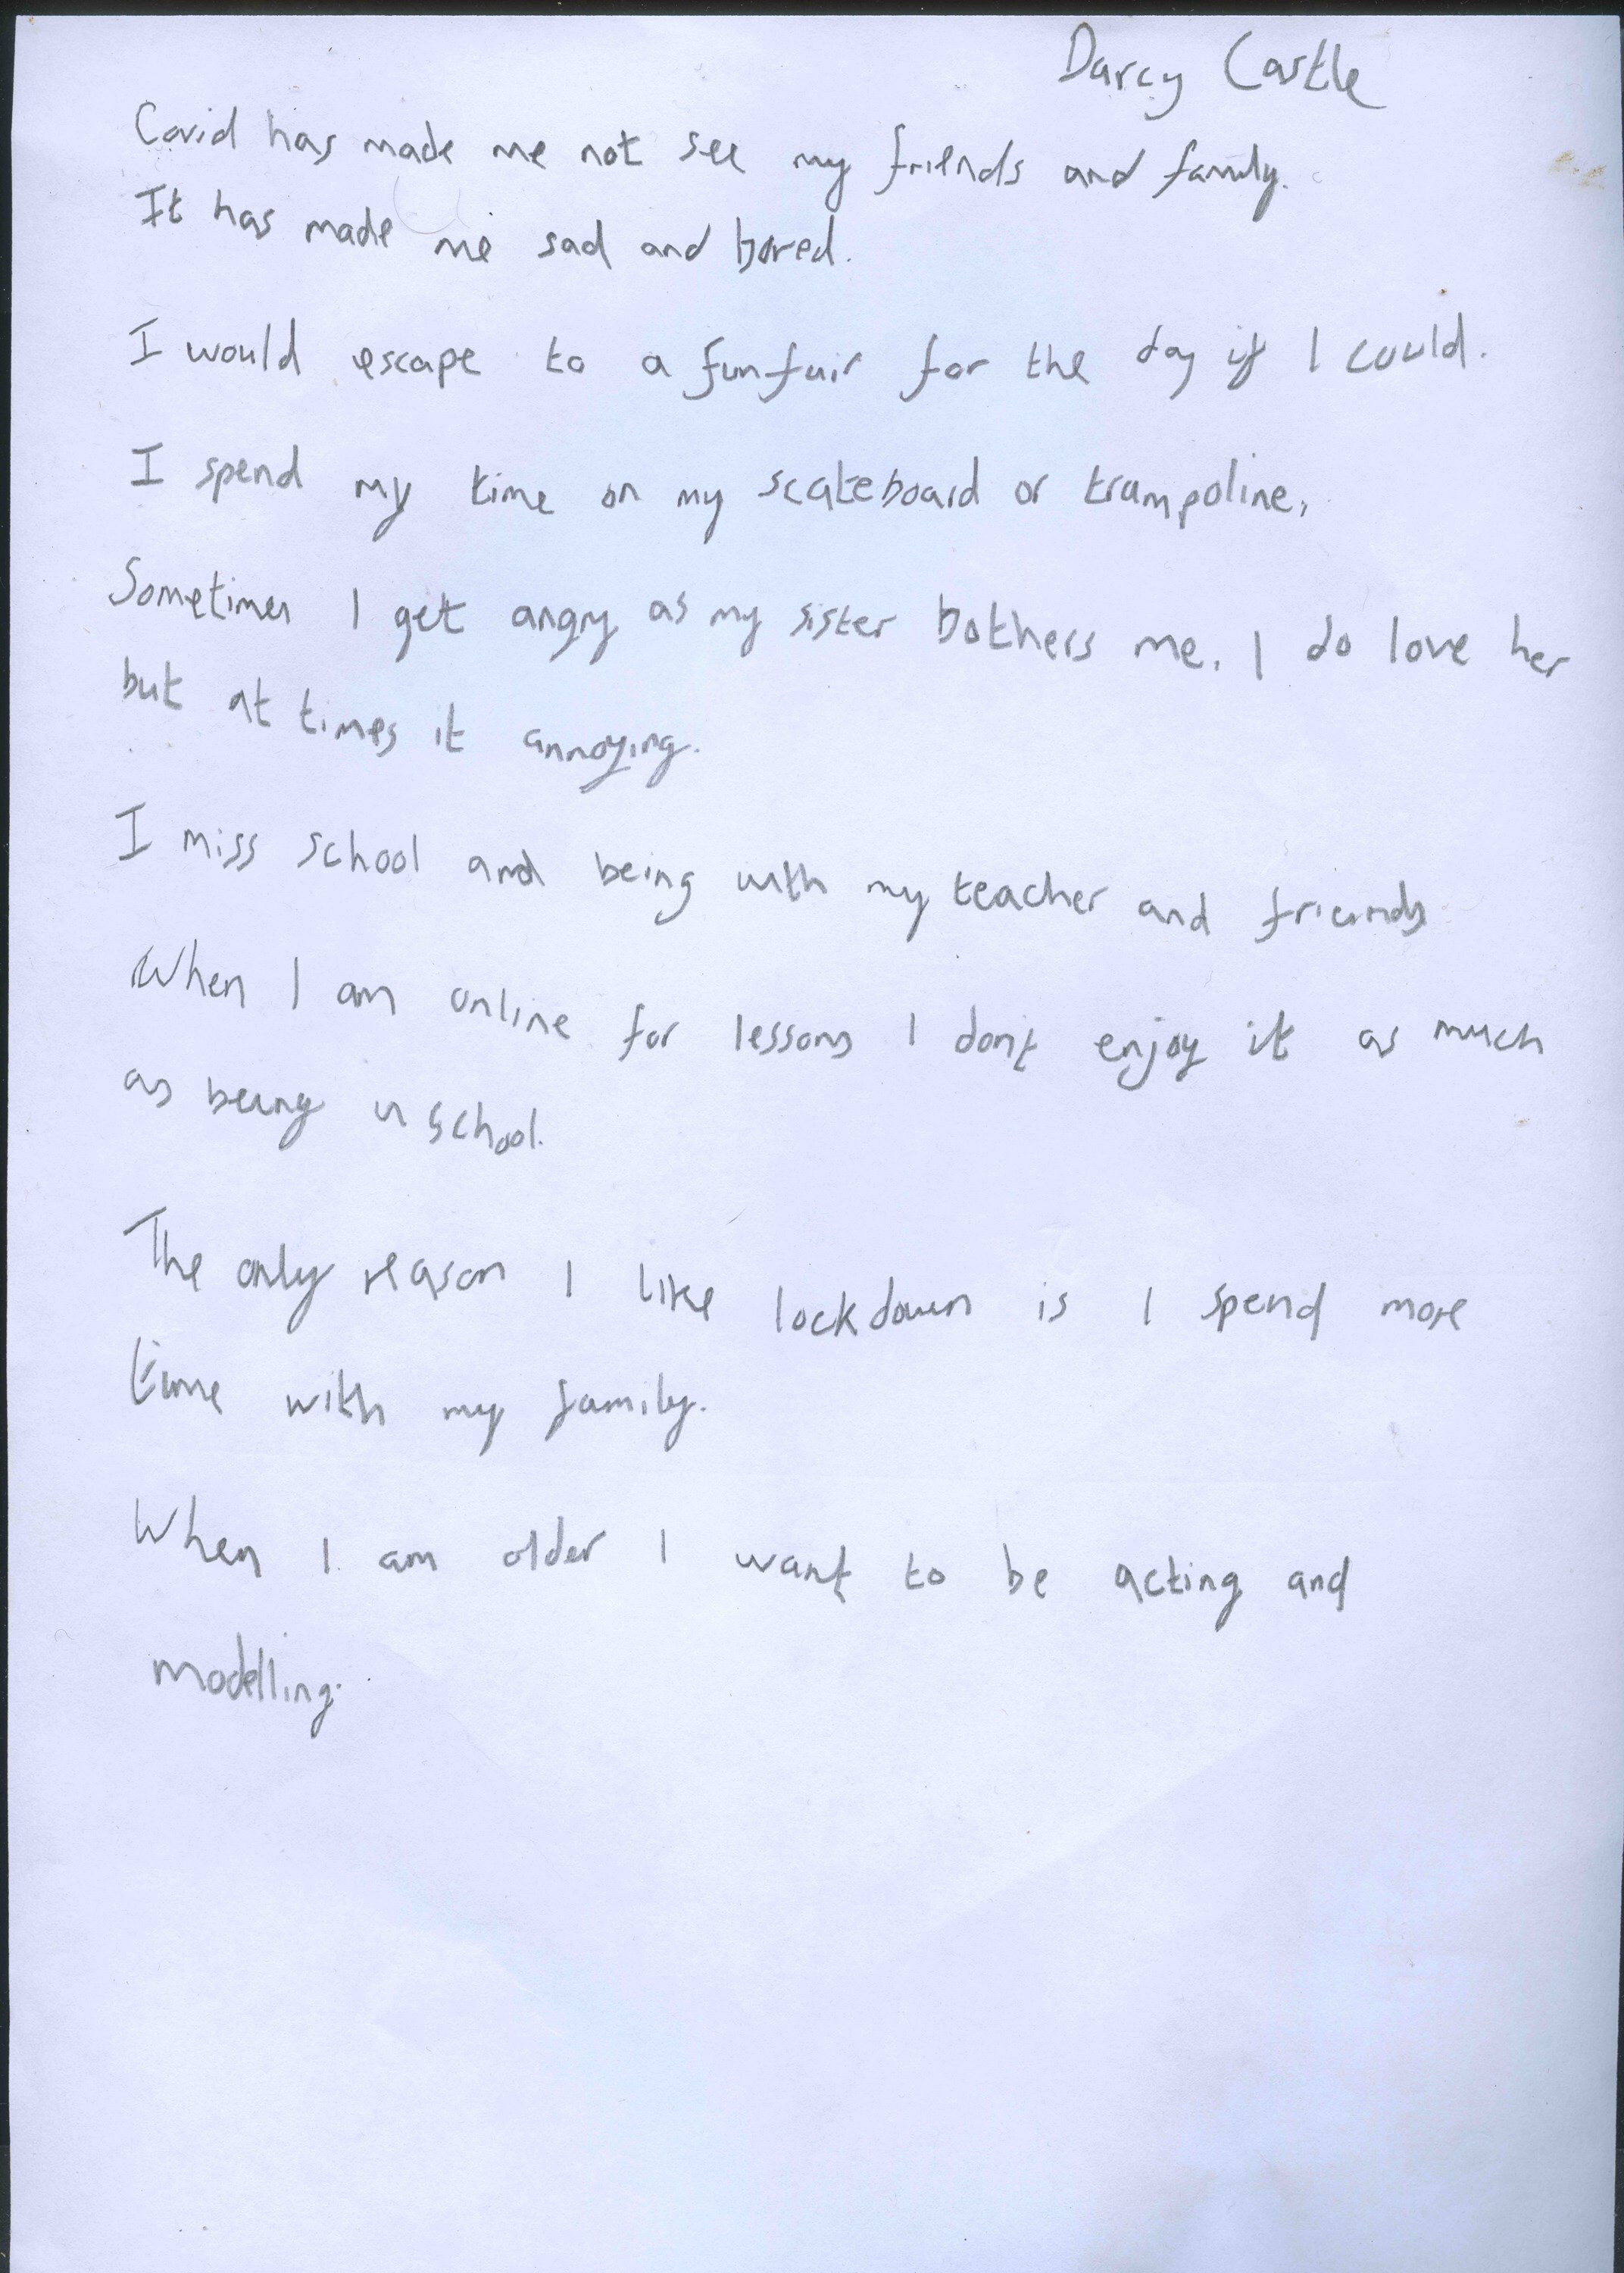 Darcy Castle
Covid has made me not see my friends and family.
It has made me sad and bored.
I would escape to a funfair for the day if I could.
I spend my time on my scateboard or trampoline,
Sometimes I get angry as my sister bothers me. I do love her
but at times it annoying.
I miss school and being with my teacher and frieinds
When I am online for lessons I don't enjoy it as much
as being in school.
The only reason I like lockdown is I spend more
time with my family.
When I am older I want to be acting and
modelling.